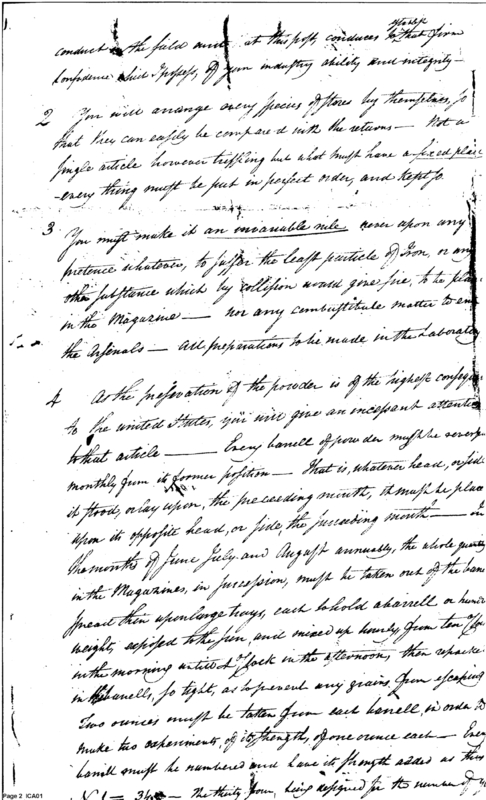 conduct in the field and at this post, conduces to that firm
confidence which I possess, of your industry ability and integrity—
2 You will arrange every species of stores by themselves, so
that they can easily be compared with the returns— Not a
single article however triffling but what must have a fixed place
—every thing must be put in perfect order, and kept so
3 You must make it an invariable rule never upon any
pretence whatever, to suffer the least particle of Iron, or any
other substance which by collision would give fire, to be
in the Magazine— nor any combustitule matter to
the Arsenals— All preparations to be made in the Laboratory
4 As the preservation of the powder is of the highest
to the united States, you will give an incessant
to that article — Every barrell of powder must be
monthly from its former position— That is, whatever head, or
it stood, or lay upon, the preceeding month, it must be
upon its opposite head, or side, the succeeding month— In
the months of June July and August annually, the whole
in the Magazines, in succession, must be taken out of the
spread thin upon large trays, each to hold a barrell or
weight, exposed to the sun, and mixed up hourly, from ten
in the morning untill Clock in the afternoon, then
in barrells, so tight, as to prevent any grains, from escaping
Two ounces must be taken from each barrell, in order to
make two experiments, of its strength, of one ounce each—
barrell must be numbered and have its strength added as thus
the thirty four, being designed for the number of
Page 2 ICA01